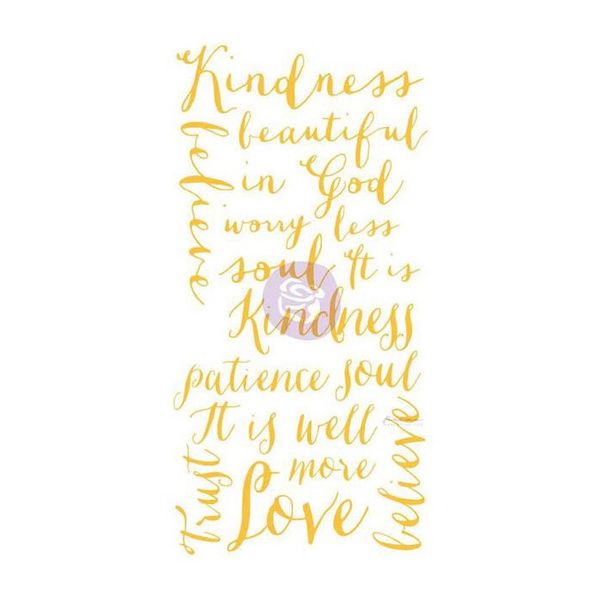 Kindness
believe
beautiful
in God
worry less
soul It is
Kindness
patience soul
It is well
believe
Trust
more
Love